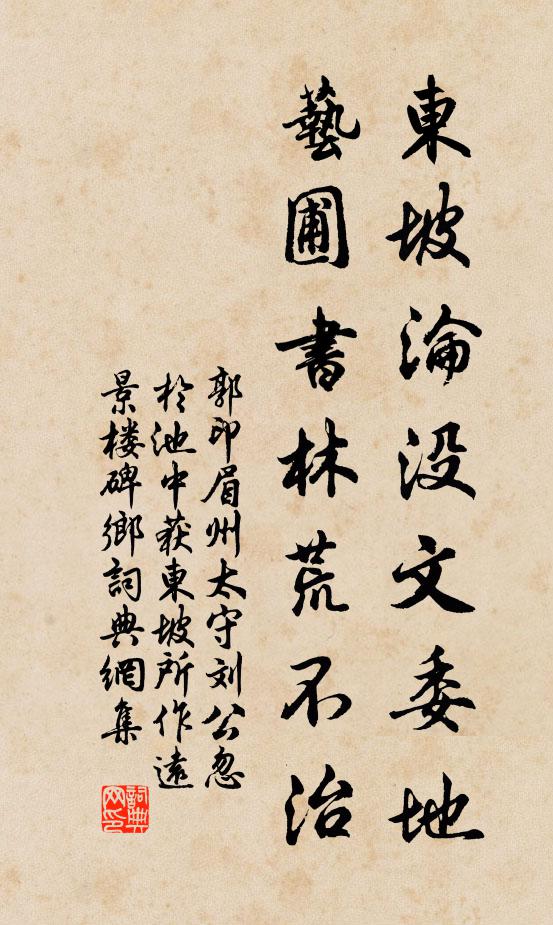 東坡淪没文委地
藝圃書林荒不治
郭印眉州太守刘公忽
於池中获東坡所作遠
景楼碑鄉詞典網集
詞典
网印